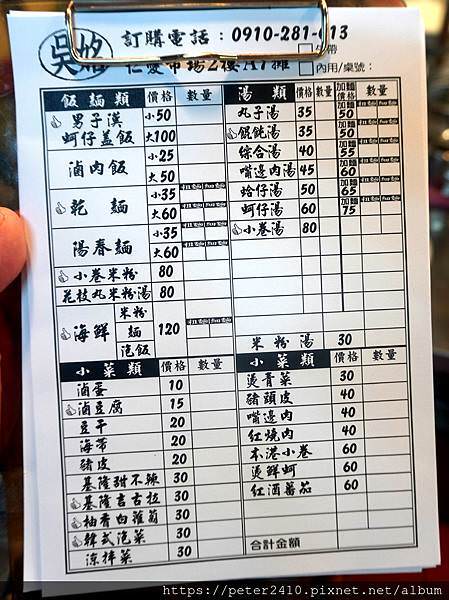 吳
訂購電話：0910-281-013
仁愛市場2樓A17攤
內用/桌號：
飯麵類 價格 數量
男子漢蚵仔蓋飯 小50
大100
滷肉飯 小25
大50
乾麵 小35
大60
陽春麵 小35
大60
小卷米粉 80
花枝丸米粉湯 80
海鮮 米粉 麵 泡飯 120
湯類 價格 加麵價格 數量
丸子湯 35 加麵50
餛飩湯 35 加麵50
綜合湯 40 加麵55
嘴邊肉湯 45 加麵60
蛤仔湯 50 加麵65
蚵仔湯 60 加麵75
小卷湯 80
米粉湯 30
小菜類 價格 數量
滷蛋 10
滷豆腐 15
豆干 20
海帶 20
豬皮 20
基隆甜不辣 30
基隆吉古拉 30
柚香白蘿蔔 30
韓式泡菜 30
涼拌菜 30
小菜類 價格 數量
燙青菜 30
豬頭皮 40
嘴邊肉 40
紅燒肉 40
本港小卷 60
燙鮮蚵 60
紅酒蕃茄 60
合計金額
https://peter2410.pixnet.net/album